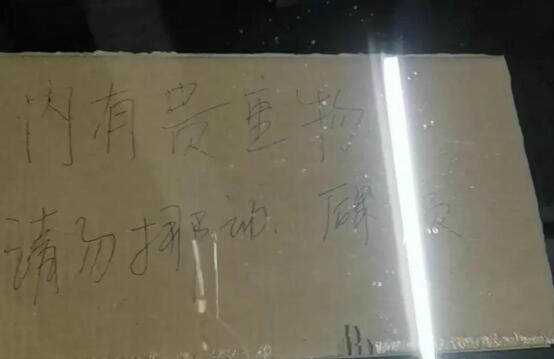 内有贵重物
请勿挪动.